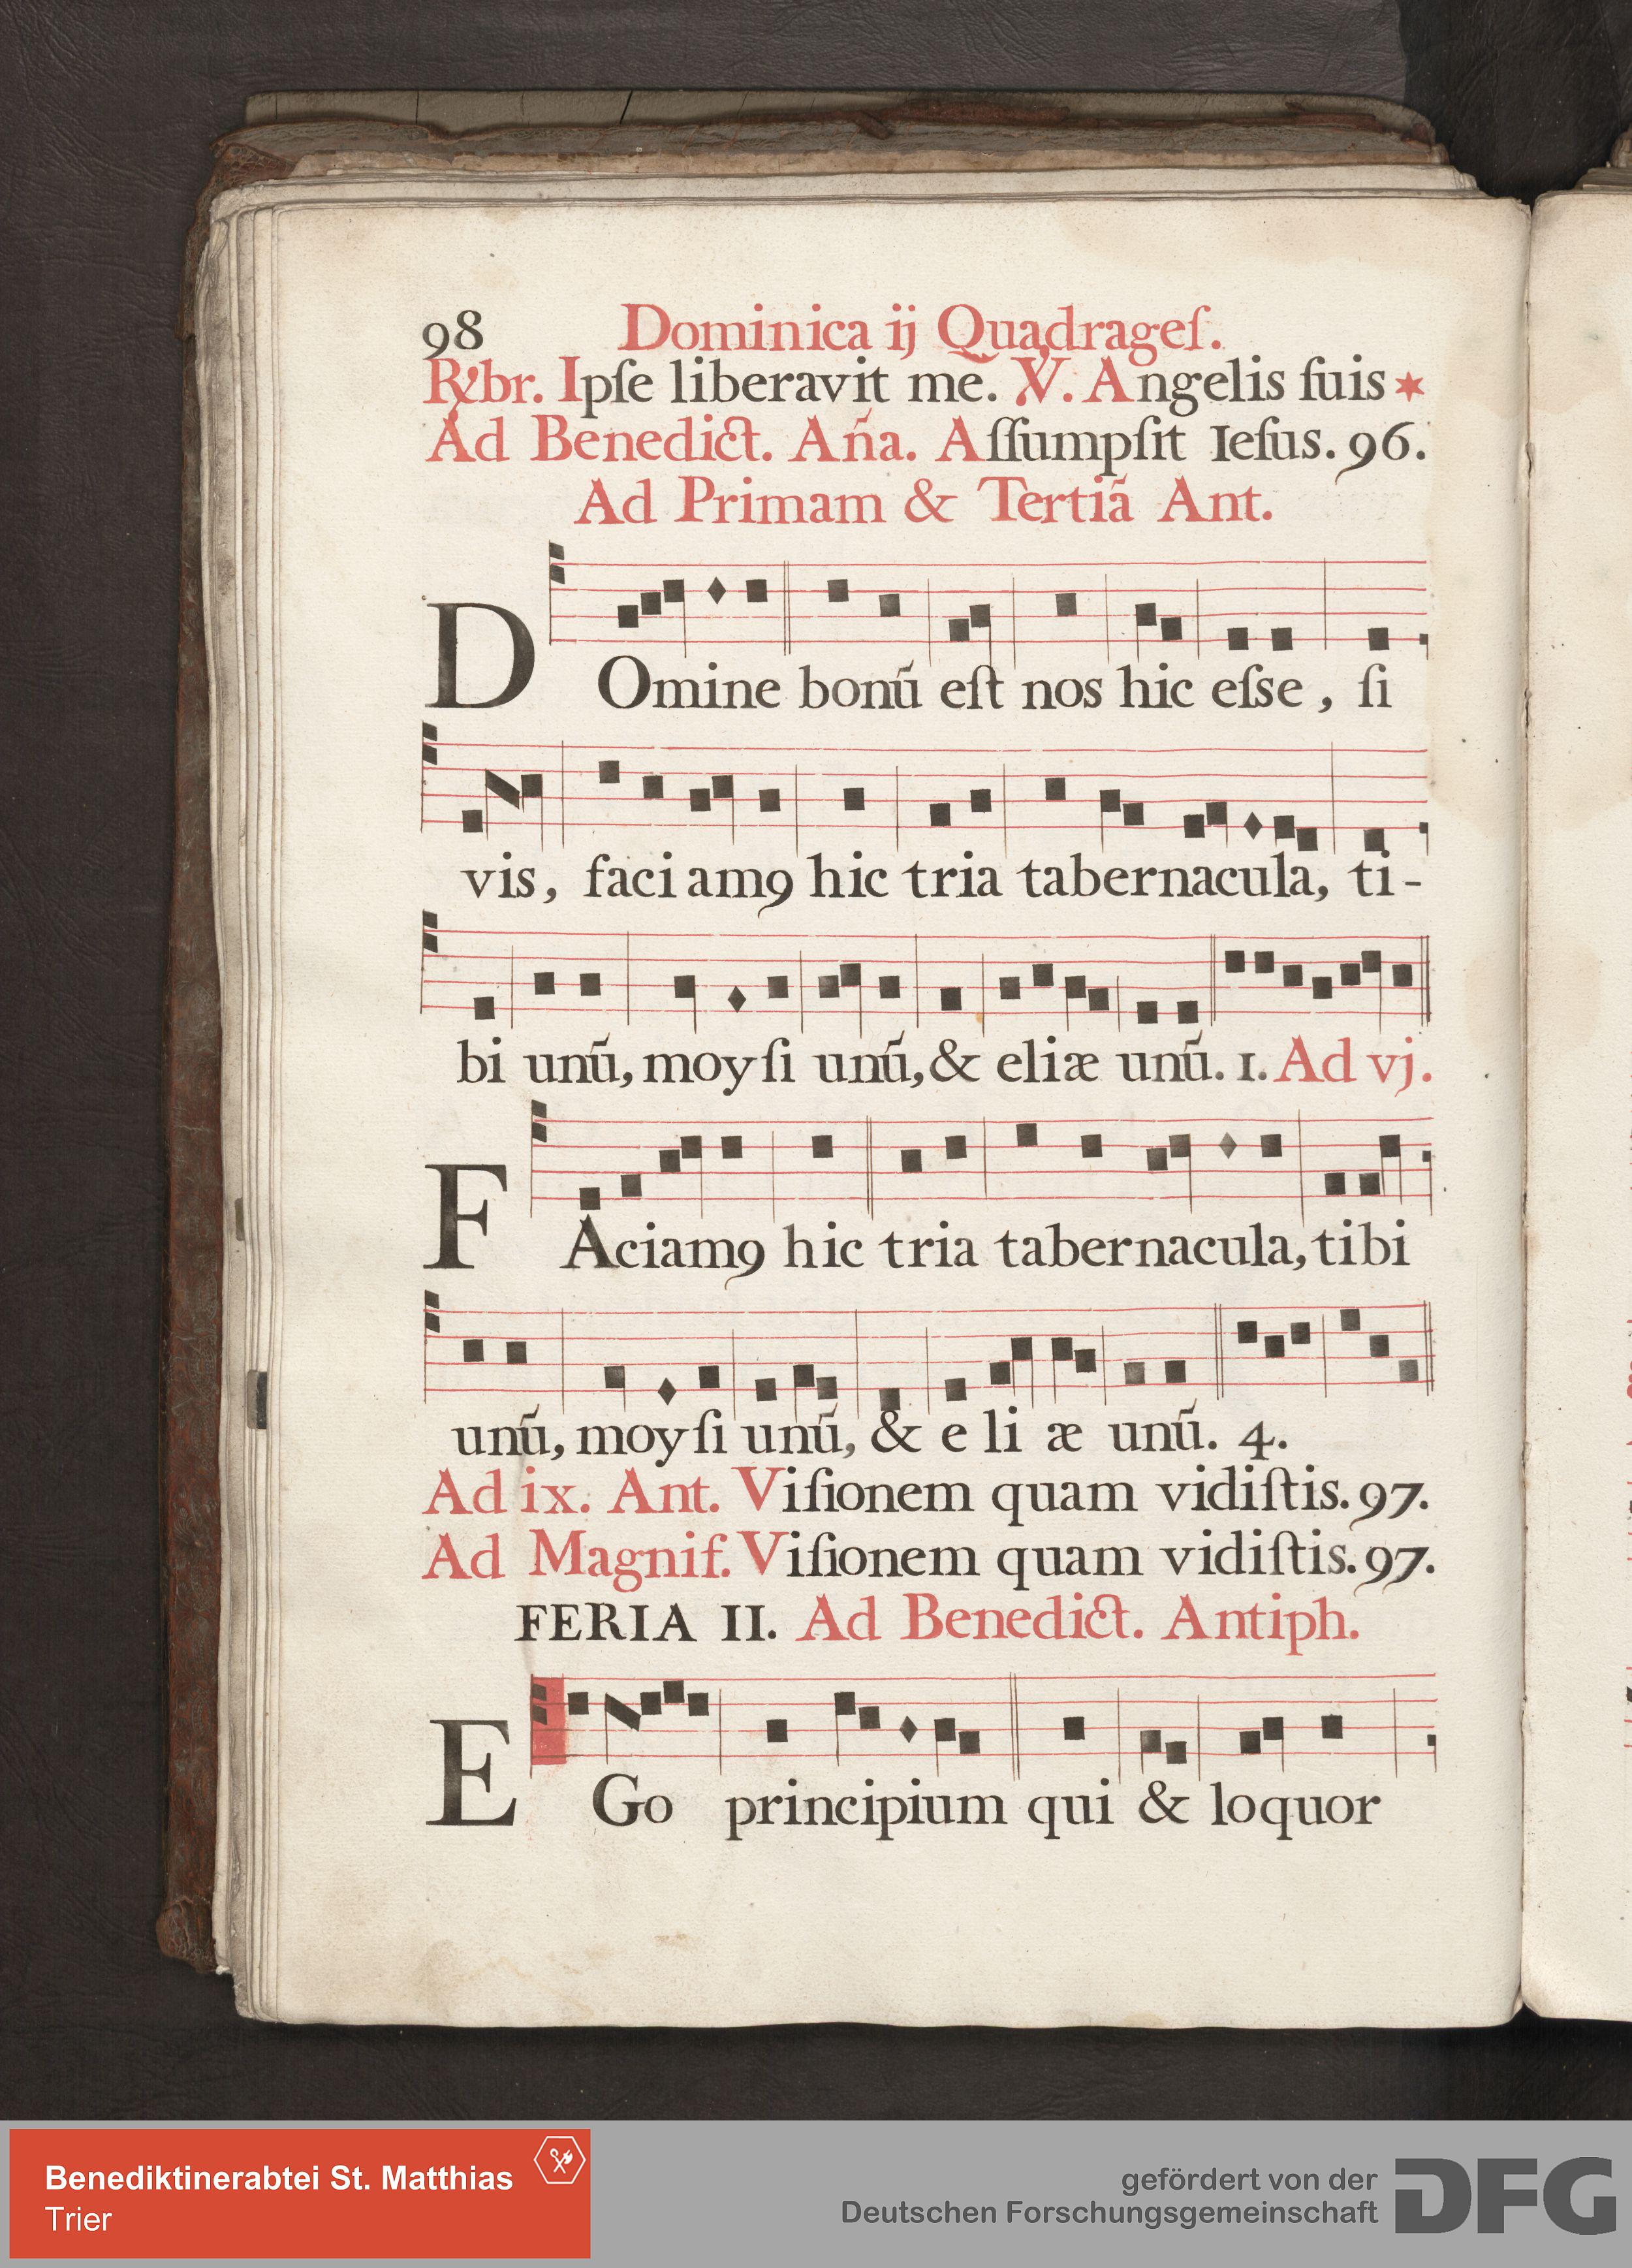 98 Dominica ij Quadrageſ.
℟br. Ipſe liberavit me. ℣. Angelis ſuis *
Ad Benedict. Añа. Aſſumpſit Ieſus. 96.
Ad Primam & Tertiã Ant.
DOmine bonũ eſt nos hic eſse, ſi
vis, faciamꝯ hic tria tabernacula, ti-
bi unũ, moyſi unũ, & eliæ unũ. 1. Ad vj.
FAciamꝯ hic tria tabernacula, tibi
unũ, moyſi unũ, & e li æ unũ. 4.
Ad ix. Ant. Viſionem quam vidiſtis. 97.
Ad Magnif. Viſionem quam vidiſtis. 97.
FERIA II. Ad Benedict. Antiph.
EGo principium qui & loquor
Benediktinerabtei St. Matthias
Trier
gefördert von der
Deutschen Forschungsgemeinschaft
DFG